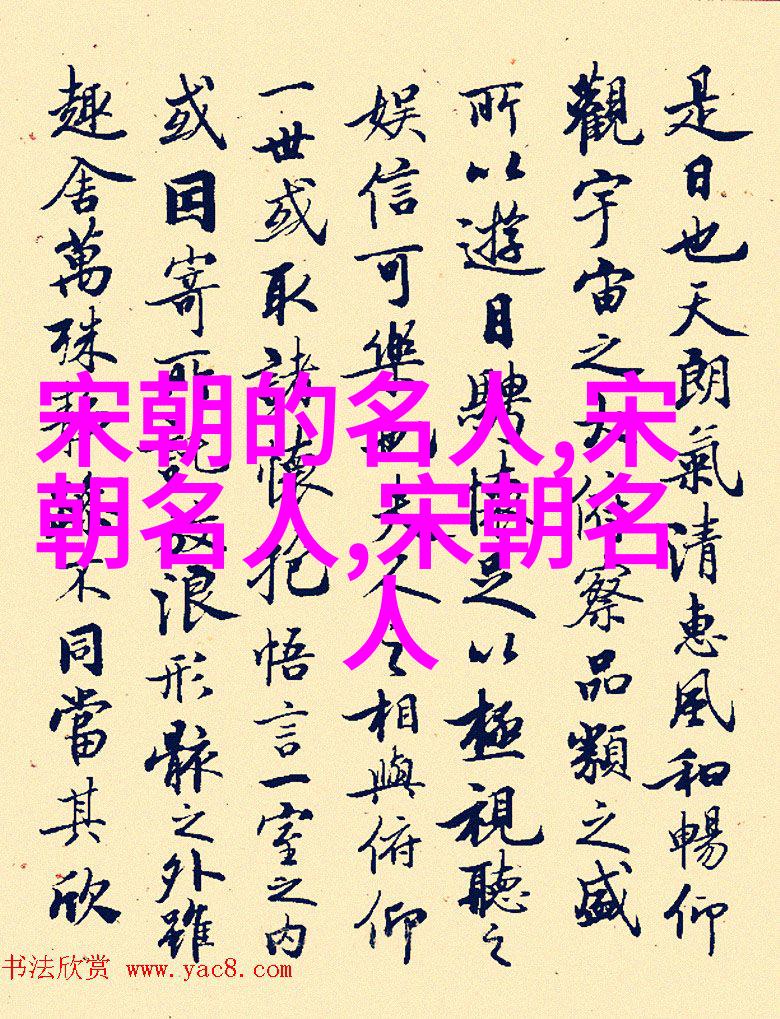 是日也天朗氣清惠風和暢仰
觀宇宙之大俯察品類之盛
所以遊目騁懷足以極視聽之
娛信可樂也夫人之相與俯仰
一世或取諸懷抱悟言一室之內
或因寄所託放浪形骸之外雖
趣舍萬殊靜躁不同當其欣
宋朝的名人,宋
朝名人,宋朝名
人
书法欣赏 www.yac8.com